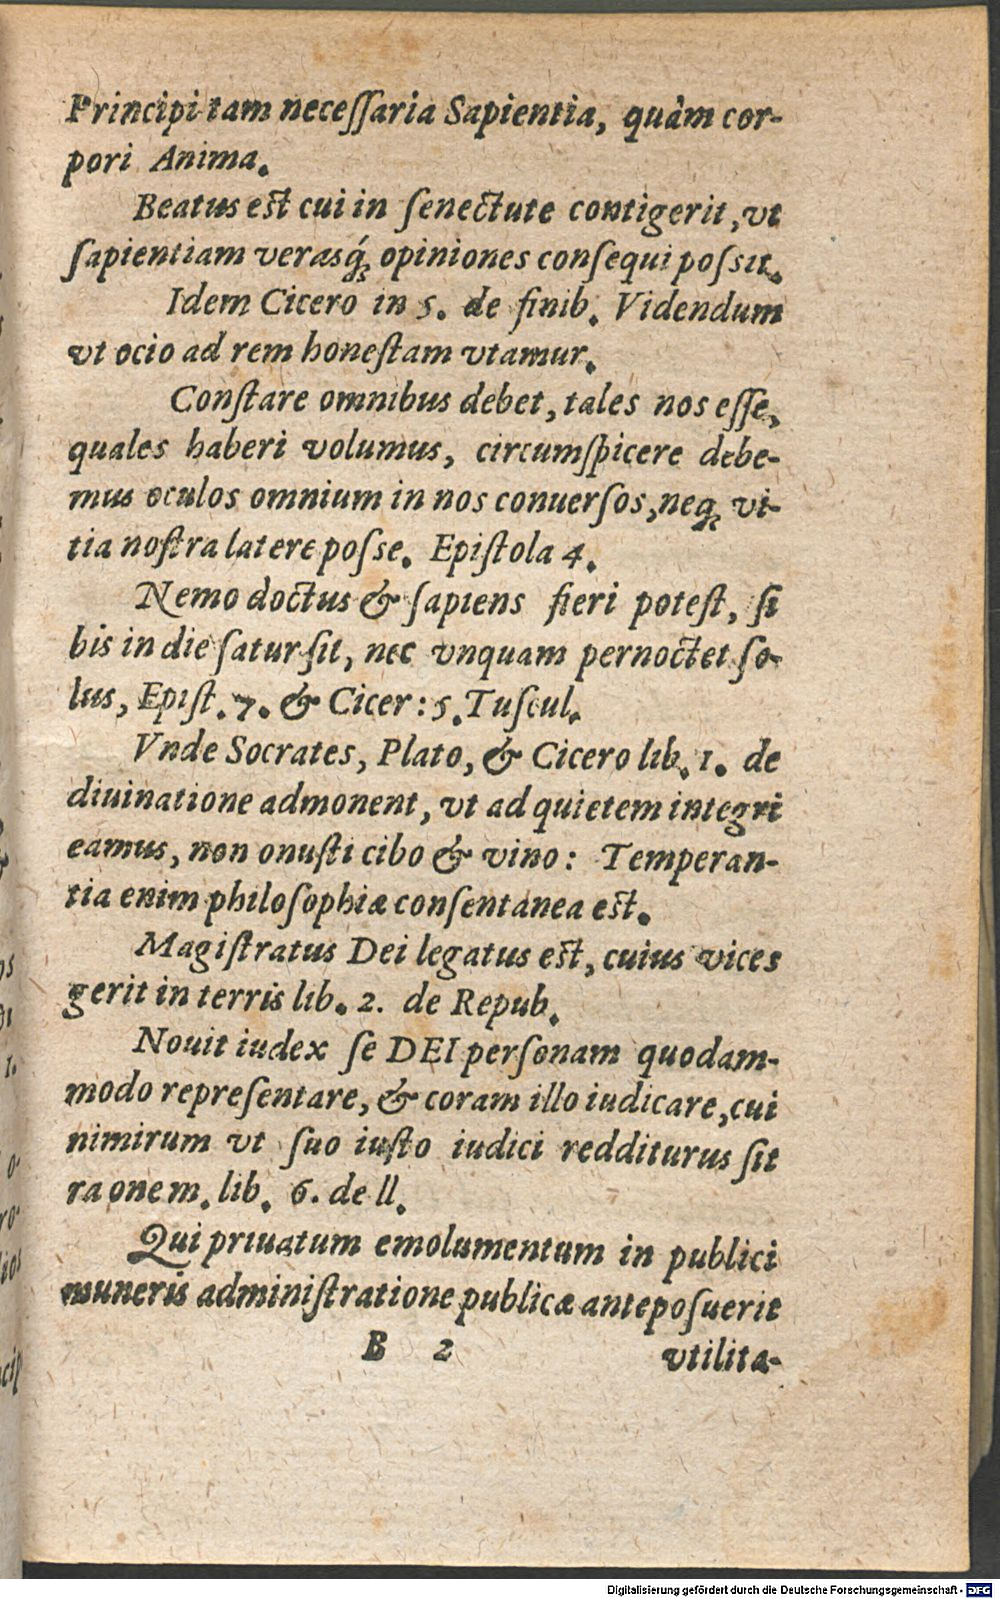 Principi tam neceſſaria Sapientia, quàm cor-
pori Anima.
Beatus eſt cui in ſenectute contigerit, vt
ſapientiam verasq́; opiniones conſequi poſsit.
Idem Cicero in 5. de finib. Videndum
vt ocio ad rem honeſtam vtamur.
Conſtare omnibus debet, tales nos eſſe,
quales haberi volumus, circumſpicere debe-
mus oculos omnium in nos conuerſos, neq; vi-
tia noſtra latere poſse. Epiſtola 4.
Nemo doctus & ſapiens fieri poteſt, ſi
bis in die ſatur ſit, nec vnquam pernoctet ſo-
lus, Epiſt. 7. & Cicer: 5. Tuſcul.
Vnde Socrates, Plato, & Cicero lib. 1. de
diuinatione admonent, vt ad quietem integri
eamus, non onuſti cibo & vino: Temperan-
tia enim philoſophiæ conſentanea eſt.
Magiſtratus Dei legatus eſt, cuius vices
gerit in terris lib. 2. de Repub.
Nouit iudex ſe DEI perſonam quodam-
modo repreſentare, & coram illo iudicare, cui
nimirum vt ſuo iuſto iudici redditurus ſit
ra onem. lib. 6. de ll.
Qui priuatum emolumentum in publici
muneris adminiſtratione publicæ antepoſuerit
B 2 vtilita-
Digitalisierung gefördert durch die Deutsche Forschungsgemeinschaft - DFG